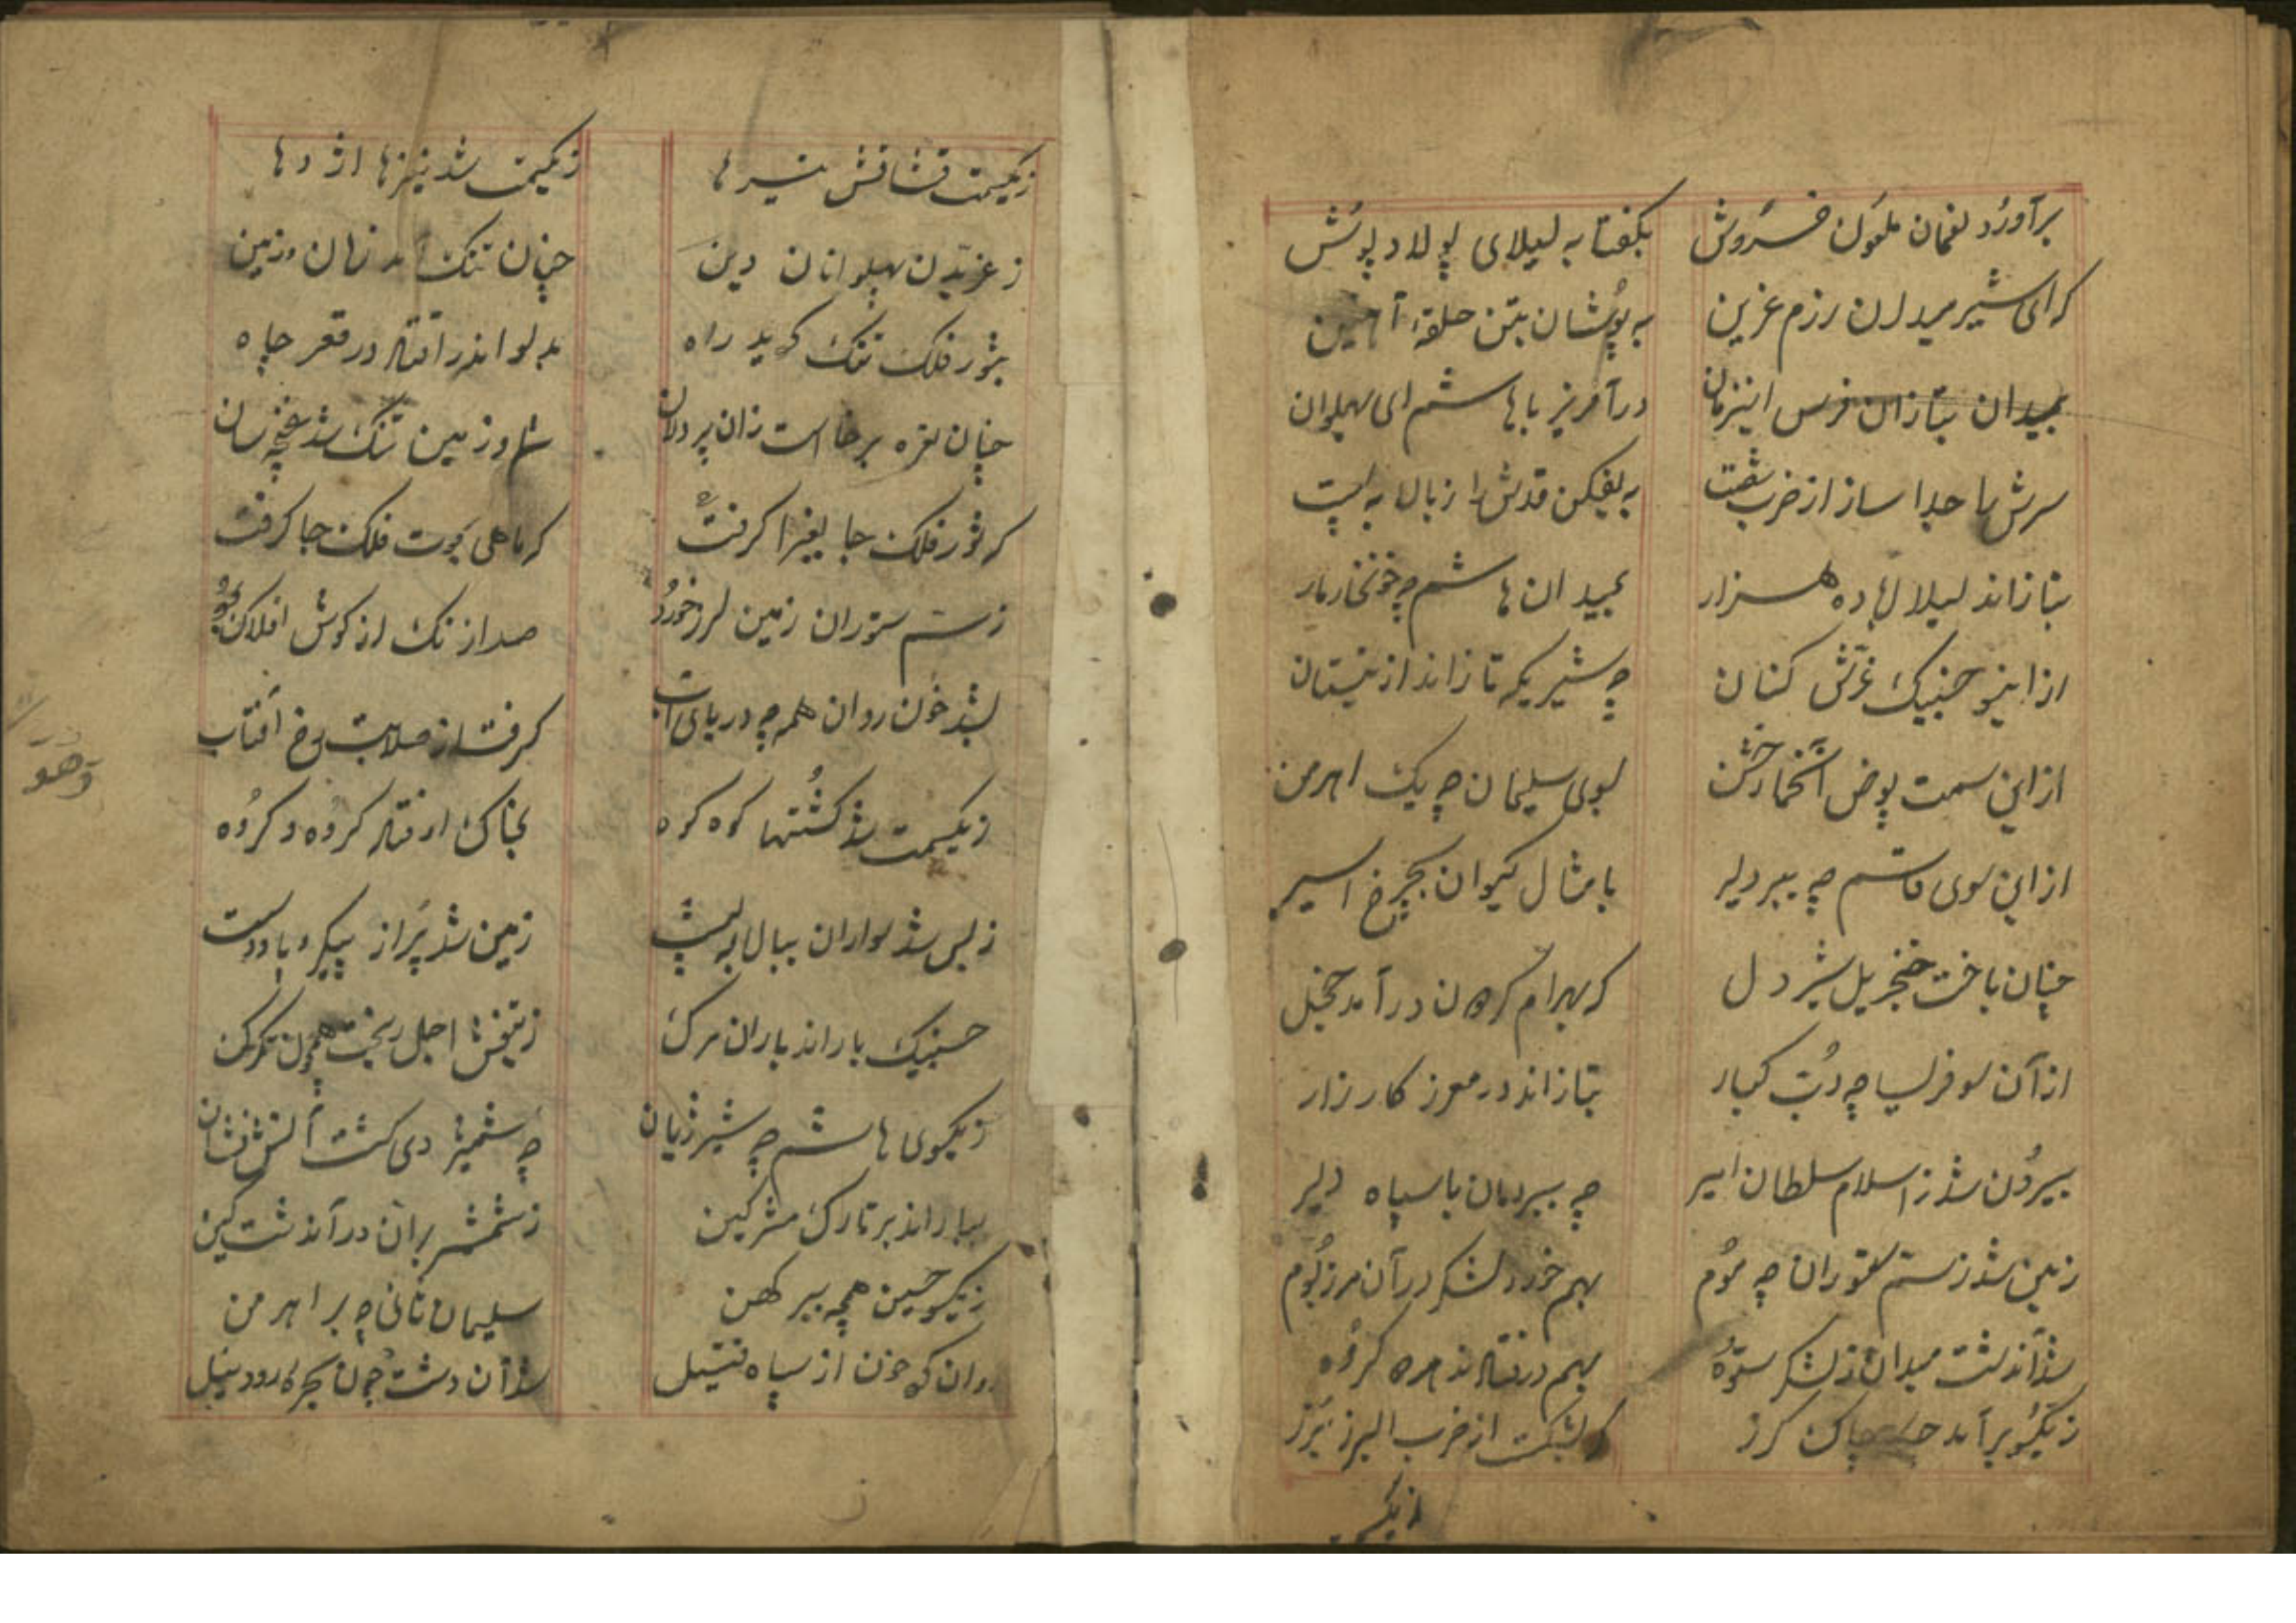 برآورد لغمان ملعون خروش بکفتا به لیلای پولاد پوش
که ای شیر میدان رزم غرین به پوشان بتن حلقهٔ آهنین
بمیدان بتازان فرس اینزمان درآمریز باهاشم ای پهلوان
سرش را جدا ساز از ضرب به بفکن قدش را ز بالا به پست
بتازاند لیلا لها ده هزار بمیدان هاشم چه خونخار مار
از اینسو حنیک غرش کنان چه شیریکه تازاند از نیستان
از این سمت بوض سوی سلیمان چه یک اهرمن
از این سوی قاسم چه ببر دلیر بامثال کیوان بچرخ اسیر
چنان باخت خنجر یل شیر دل که بهرام کردون درآمد خجل
از آن سو فرلیسا چه دب کبار بتازاند در معرز کارزار
بیرون شد ز اسلام سلطان امیر چه ببر دمان با سپاه دلیر
زمین شد ز ستم ستوران چه موم بهم خورد لشکر در آن مرز بوم
شد آندشت میدان ز لشکر ستوه بهم در فتادند هر کروه
زیکسو برآمد چاک کرز که بشکست از ضرب البرز برز
زیکسـ
زیکسمت فشافش تیرها زیکسمت شد نیزها اژدها
ز غریدن پهلوانان دین چنان تنک آمد زمان و زمین
بثور فلک تنک کردید راه بدلو اندر افتاد در قعر چاه
چنان نعره برخاست زان پر دلان سما و زمین تنک شد غنچه سان
که ثور فلک جا بغبرا کرفت که ماهی بحوت فلک جا کرفت
ز ستم ستوران زمین لرز خورد صدا از تک از کوش افلاک
بشد خون روان همه چه دریای آب کرفت از صلابت رخ آفتاب
زیکسمت شد کشتها کوه کوه بخاک افتاد کروه و کروه
ز بس شد سواران ببالا به پشت زمین شد پر از پیکر و پا و دست
حنیک باراند باران مرک ز تیغش اجل ریخت همچون تکرک
زیکسوی هاشم چه شیر ژیان چه شمشیر دی کشت آتش فشان
بباراند بر تارک مشرکین ز شمشیر بران در آندشت کین
زیکسو حسین همچه ببر کهن سلیمان ثانی چه بر اهرمن
روان کرد خون از سپاه فتیل شد آن دشت چون بحر کا رود نیل
وهو